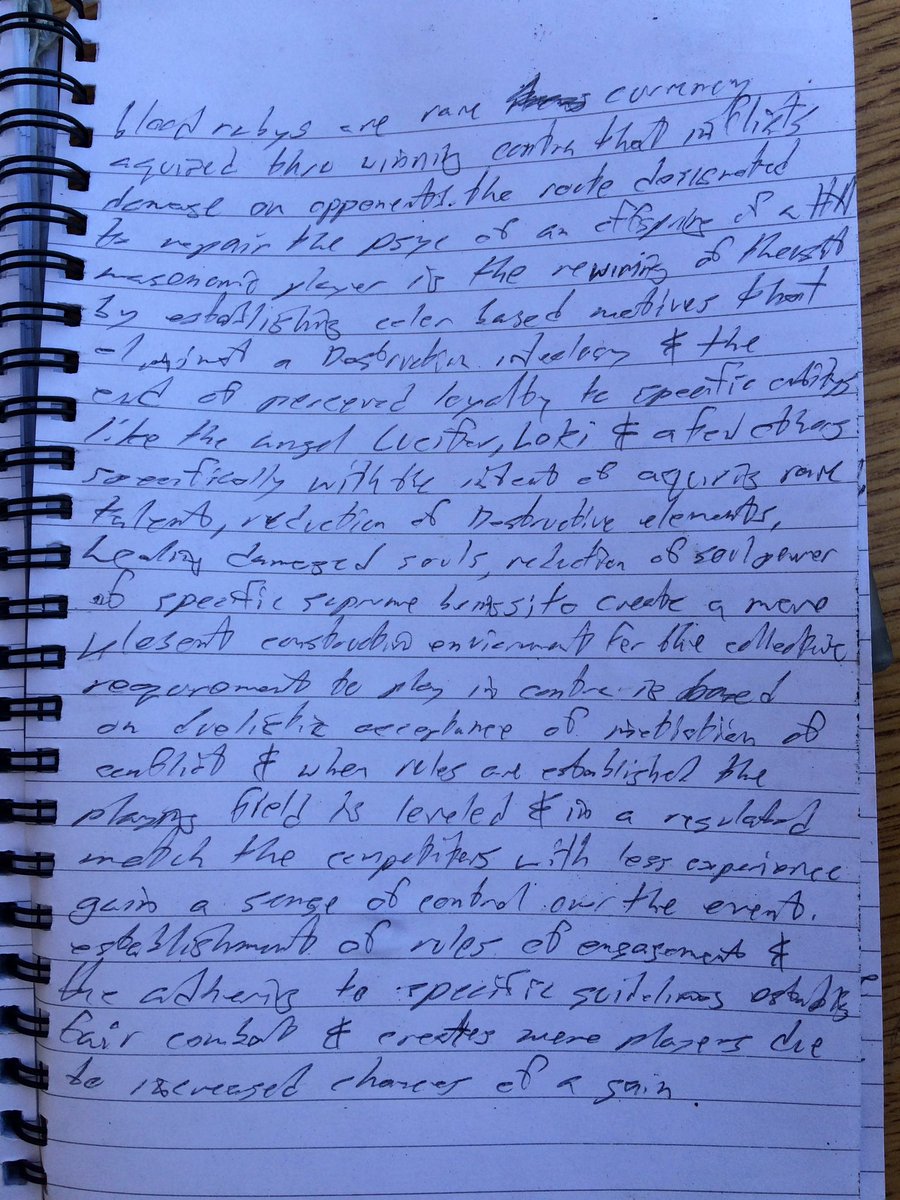 blood rubys are rare currency
aquired thru winning contra that inflicts
damage on opponents. the route designated
to repair the psye of an offspring of a
masenomic player is the rewiring of
by establishing color based motives that
a Destruction & the
end of perceved loyalty to specific
like the angel Lucifer, Loki & a few others
specifically with the intent of aquiring rare
talent, reduction of Destructive elements,
healing damaged souls, reduction of soul power
of specific supreme to create a more
plesent construction enviornment for the collective
requirement to play in contra is based
on dvolistic acceptance of of
conflict & when rules are established the
playing field is leveled & in a regulated
match the competiters with less experience
gain a sense of control over the event.
establishment of rules of engagement &
the adhering to specific guidelines
fair combat & creates more players due
to increased chances of a gain